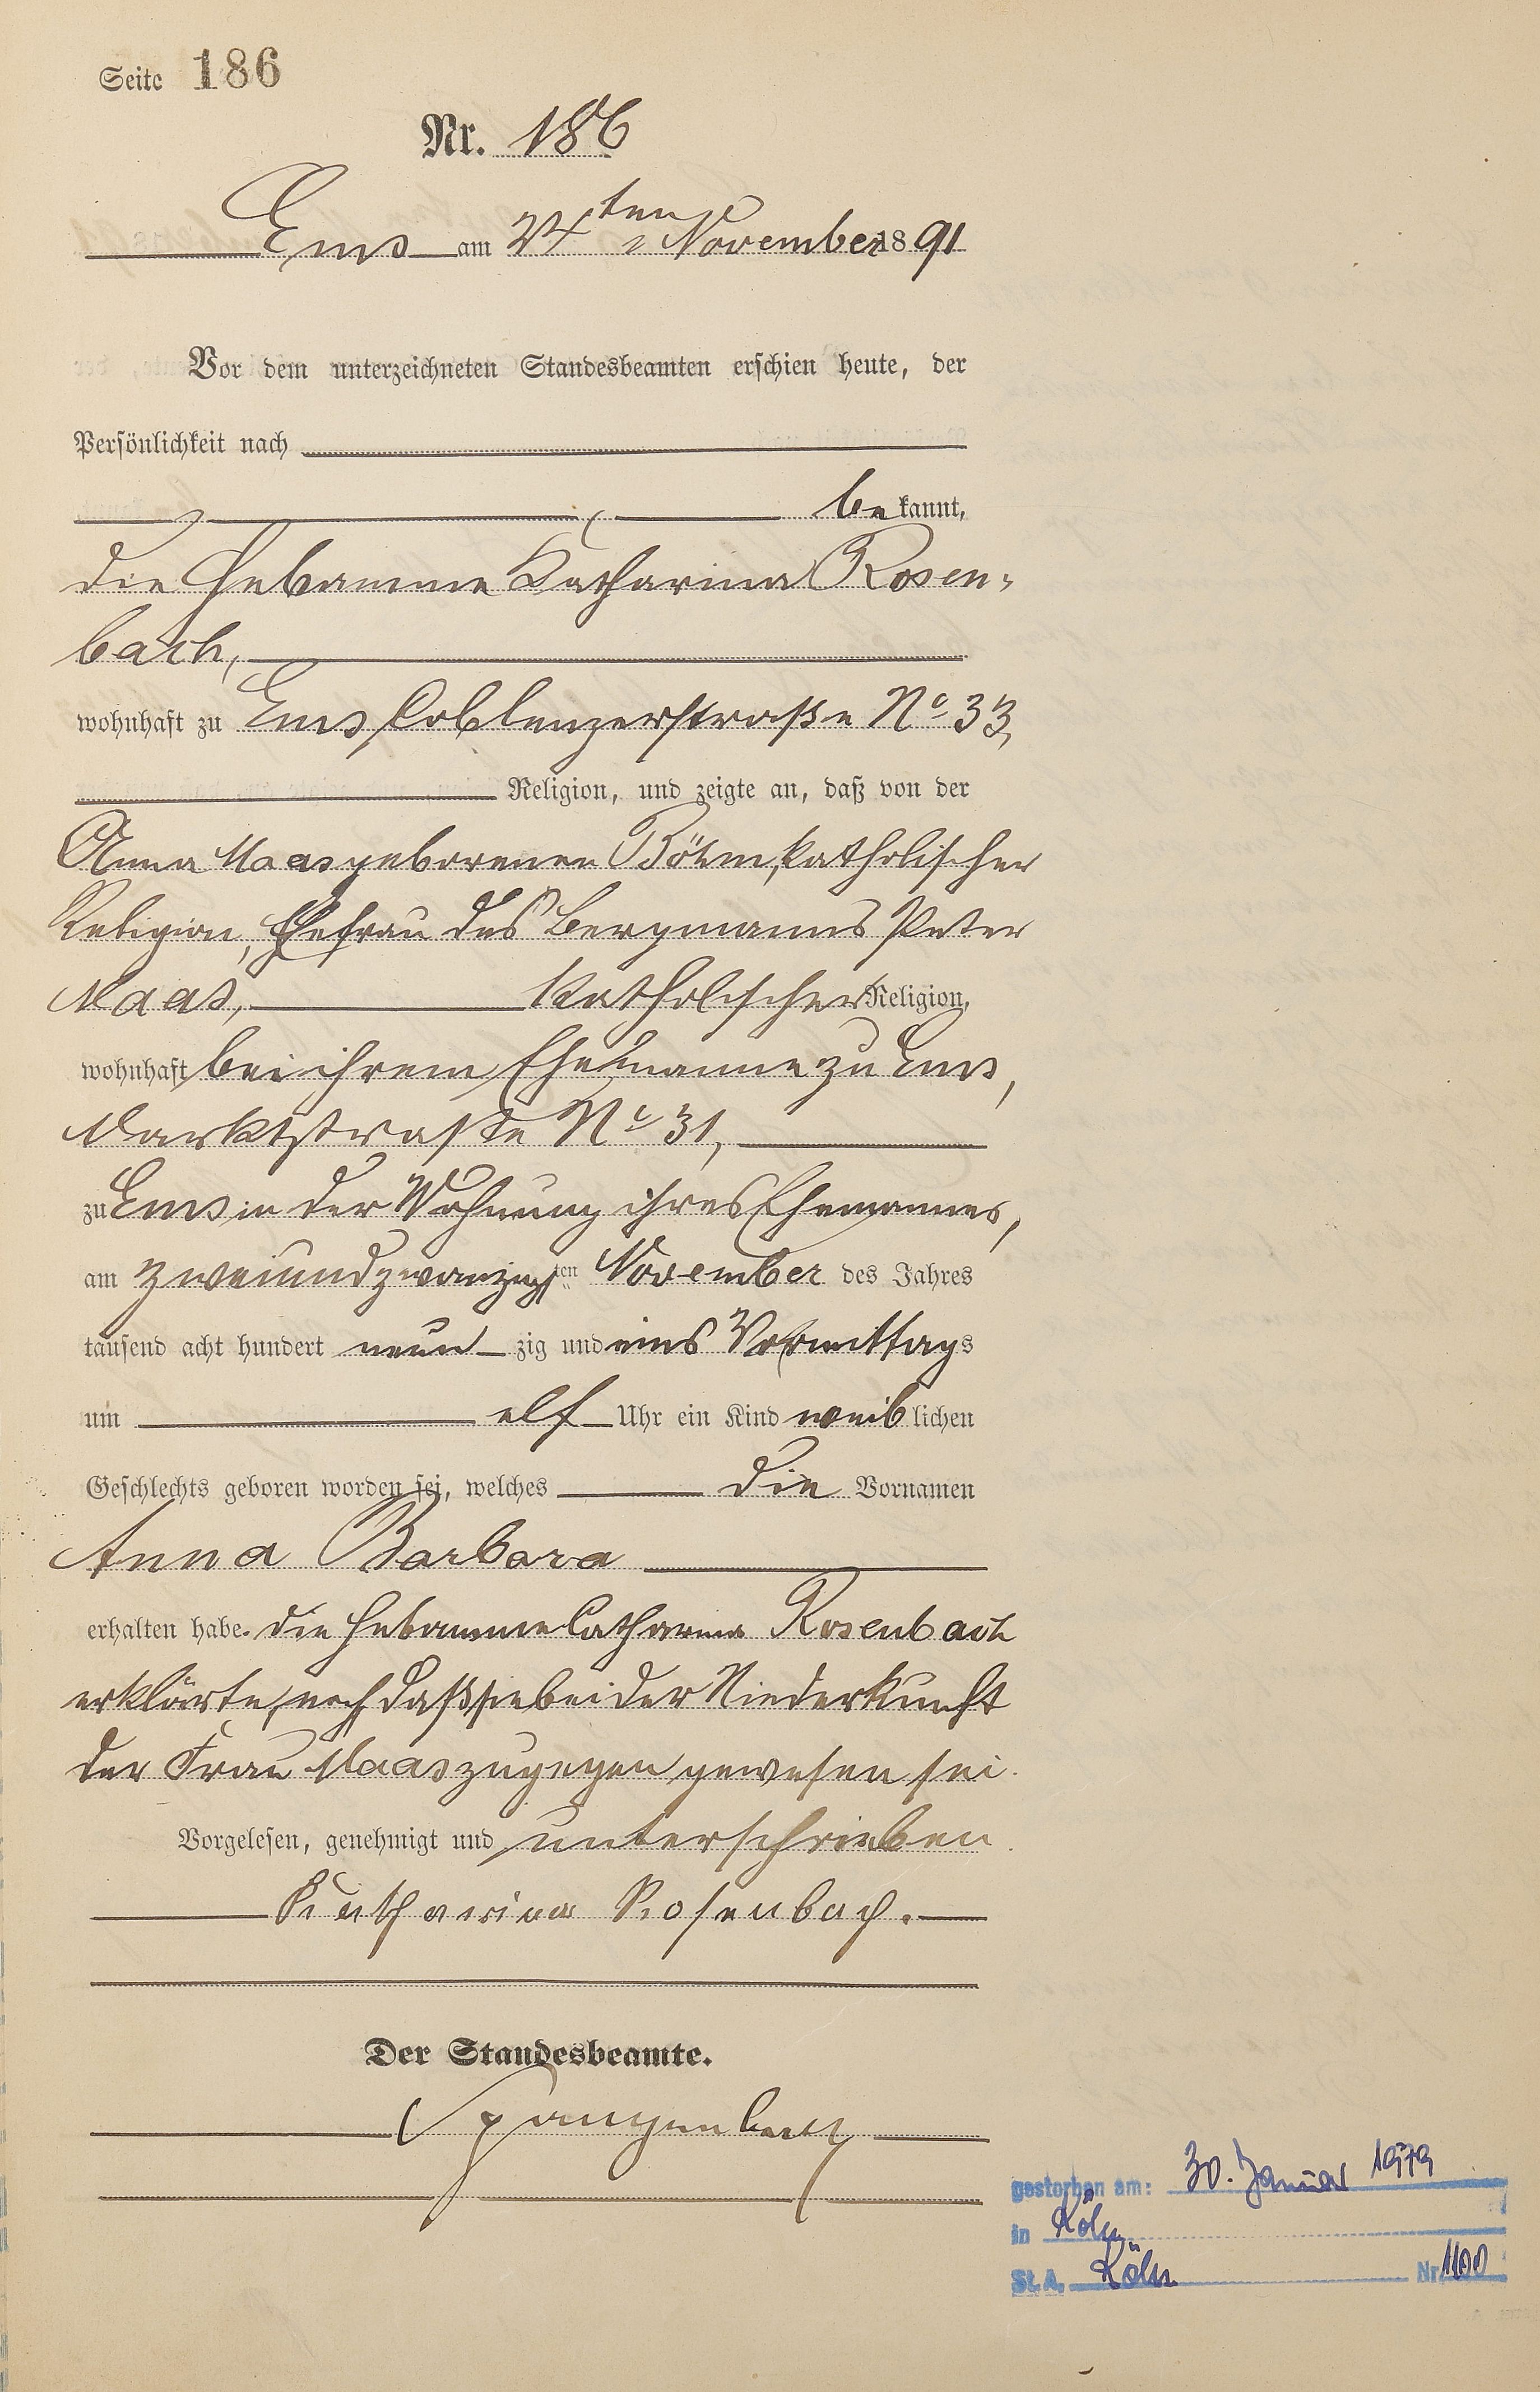 Seite 186
Nr. 186
Ems am 24ten November 1891
Vor dem unterzeichneten Standesbeamten erschien heute, der
Persönlichkeit nach
bekannt,
die Hebamme Katharina Rosen-
bach,
wohnhaft zu Ems, Coblenzerstraße No 33,
Religion, und zeigte an, daß von der
Anna Maas geborenen Böhm, katholischer
Religion, Ehefrau des Bergmanns Peter
Maas, katholischer Religion,
wohnhaft bei ihrem Ehemanne zu Ems,
Marktstraße No 31,
zu Ems in der Wohnung ihres Ehemannes,
am zweiundzwanzigsten November des Jahres
tausend acht hundert neunzig und eins Vormittags
um elf Uhr ein Kind weiblichen
Geschlechts geboren worden sei, welches die Vornamen
Anna Barbara
erhalten habe. Die Hebamme Catharina Rosenbach
erklärte, noch daß sie bei der Niederkunft
der Frau Maas zugegen gewesen sei.
Vorgelesen, genehmigt und unterschrieben
Katharina Rosenbach.
Der Standesbeamte.
Spangenberg
gestorben am: 30. Januar 1979
in Köln
St. A. Köln Nr. 1100